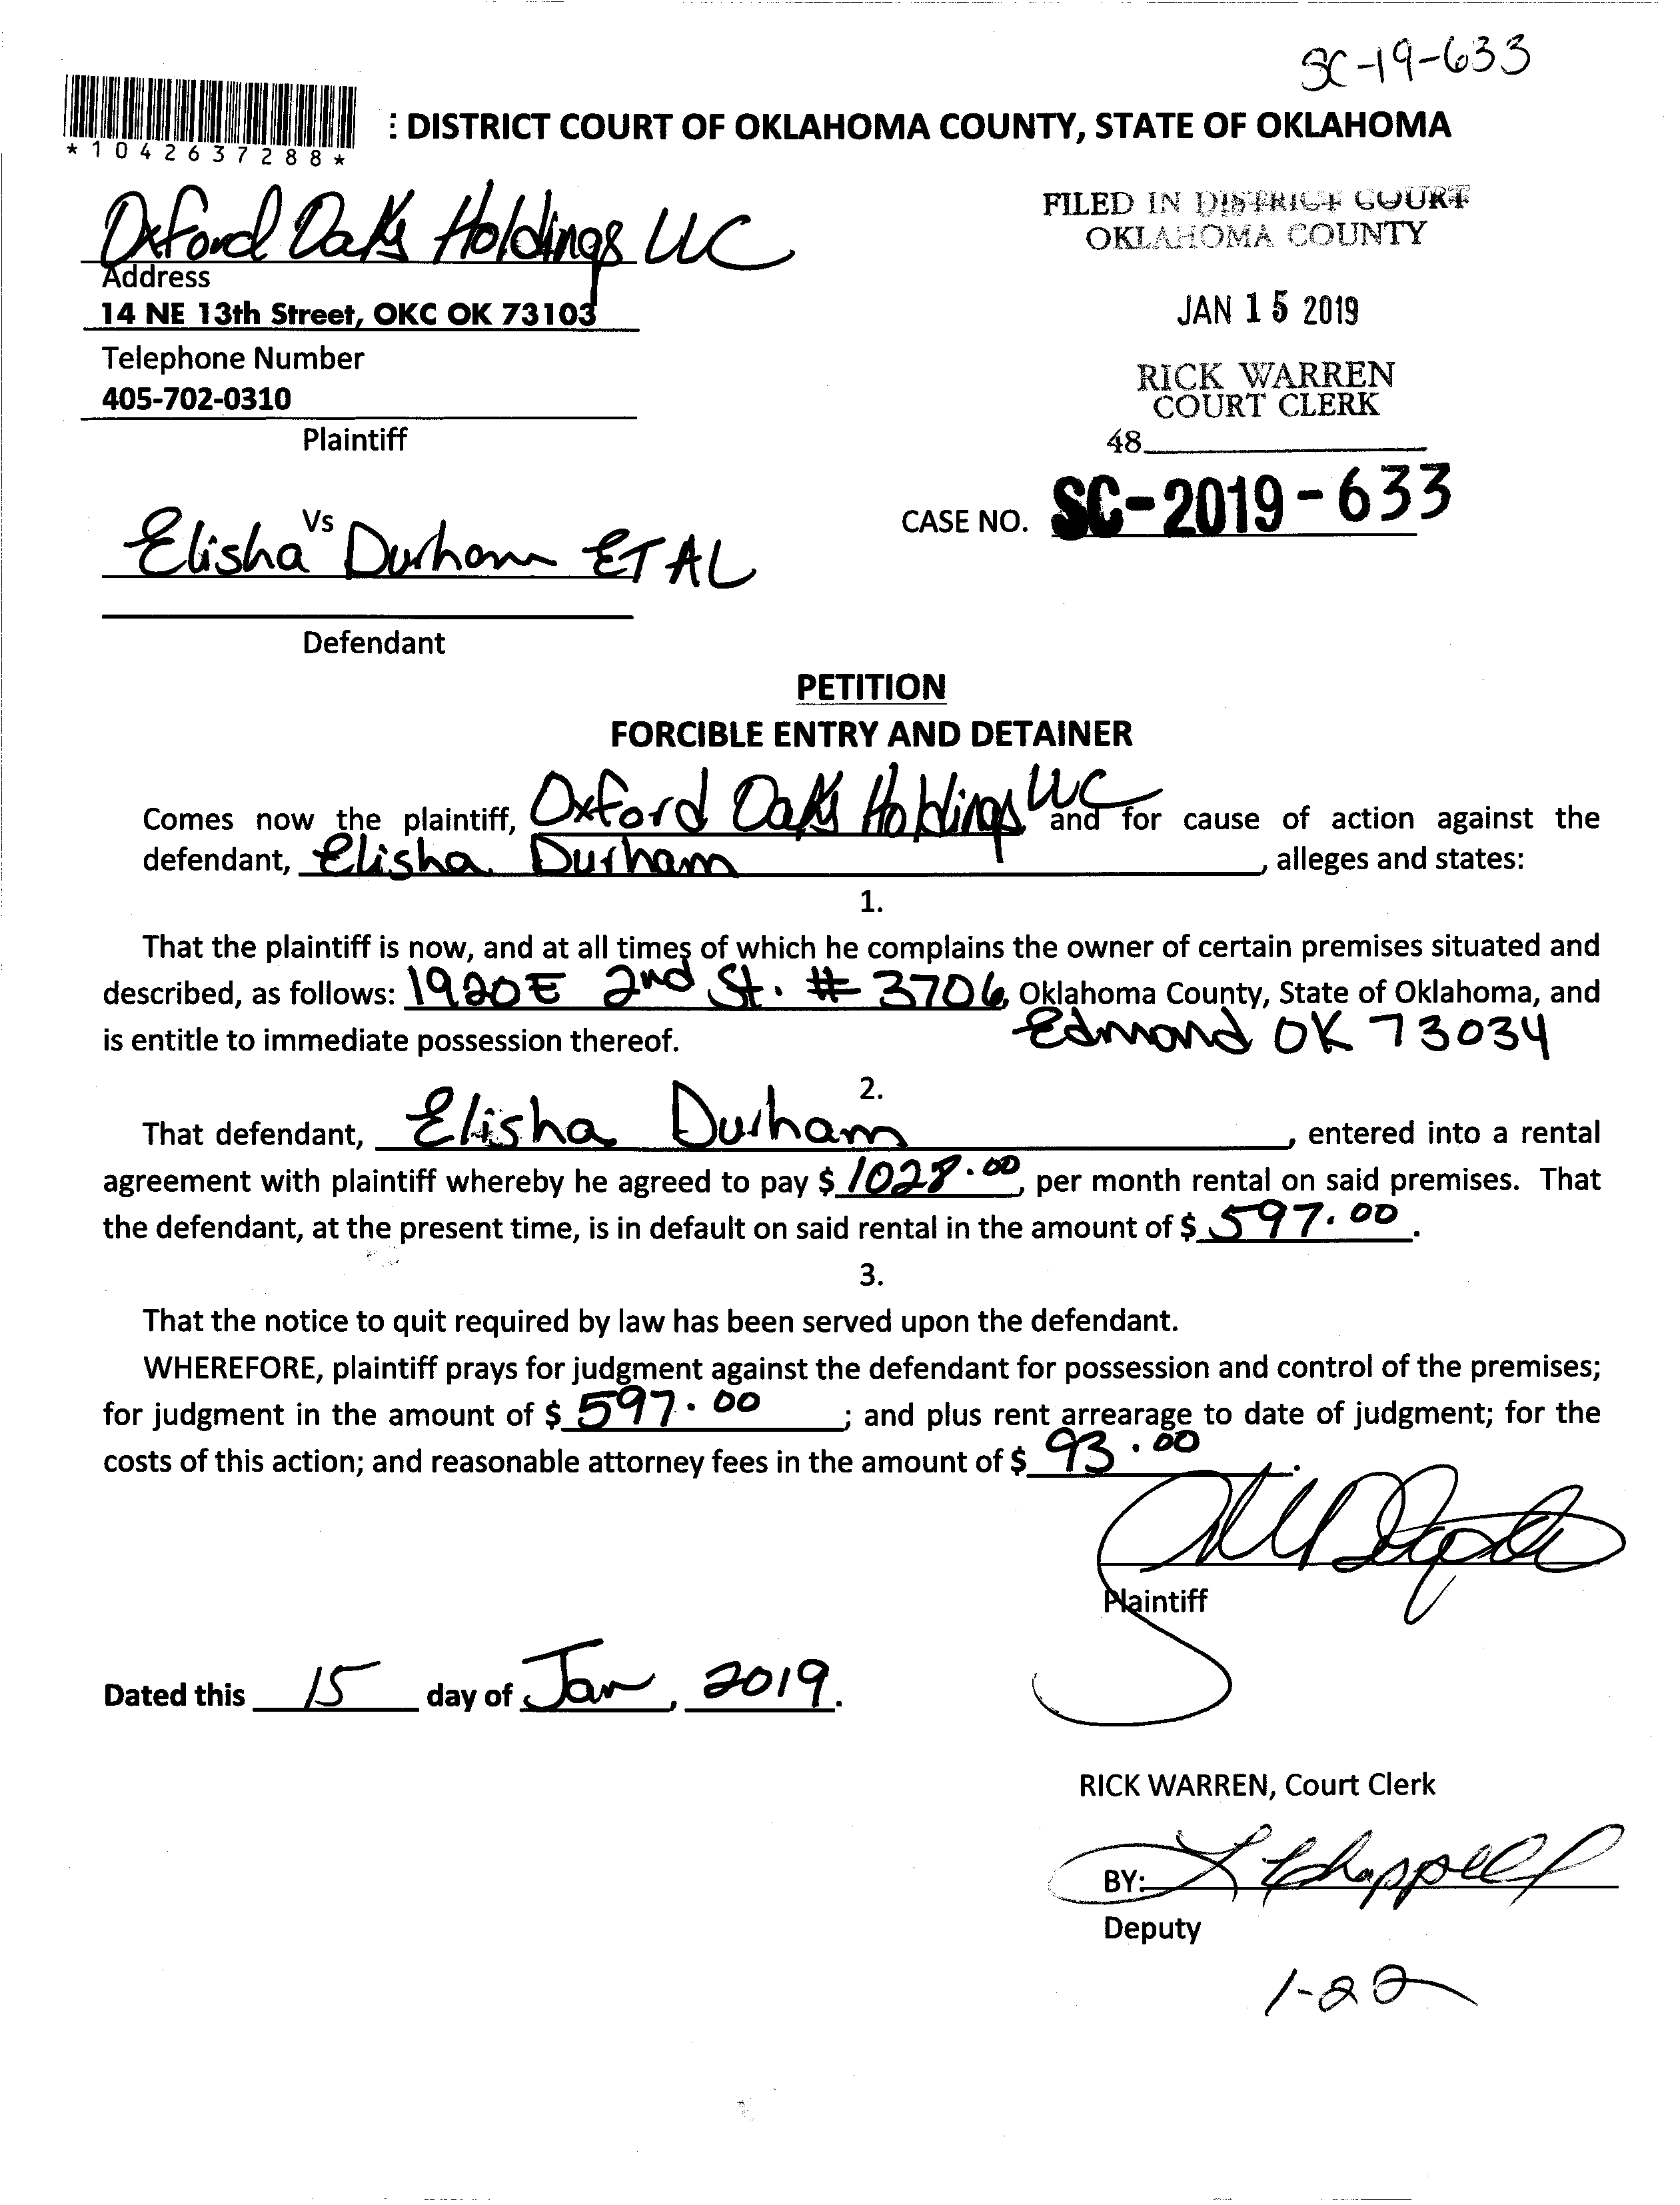 SC-19-633
: DISTRICT COURT OF OKLAHOMA COUNTY, STATE OF OKLAHOMA
*1042637288*
Oxford Oaks Holdings LLC
Address
14 NE 13th Street, OKC OK 73103
Telephone Number
405-702-0310
Plaintiff
FILED IN DISTRICT COURT
OKLAHOMA COUNTY
JAN 15 2019
RICK WARREN
COURT CLERK
48
CASE NO. SC-2019-633
Vs
Elisha Durham ET AL
Defendant
PETITION
FORCIBLE ENTRY AND DETAINER
Comes now the plaintiff, Oxford Oaks Holdings LLC and for cause of action against the
defendant, Elisha Durham, alleges and states:
1.
That the plaintiff is now, and at all times of which he complains the owner of certain premises situated and
described, as follows: 1920 E 2nd St. # 3706, Oklahoma County, State of Oklahoma, and
is entitle to immediate possession thereof. Edmond OK 73034
2.
That defendant, Elisha Durham, entered into a rental
agreement with plaintiff whereby he agreed to pay $ 1028.00, per month rental on said premises. That
the defendant, at the present time, is in default on said rental in the amount of $ 597.00.
3.
That the notice to quit required by law has been served upon the defendant.
WHEREFORE, plaintiff prays for judgment against the defendant for possession and control of the premises;
for judgment in the amount of $ 597.00; and plus rent arrearage to date of judgment; for the
costs of this action; and reasonable attorney fees in the amount of $ 93.00.
Plaintiff
Dated this 15 day of Jan, 2019.
RICK WARREN, Court Clerk
BY: L Chappell
Deputy
1-22